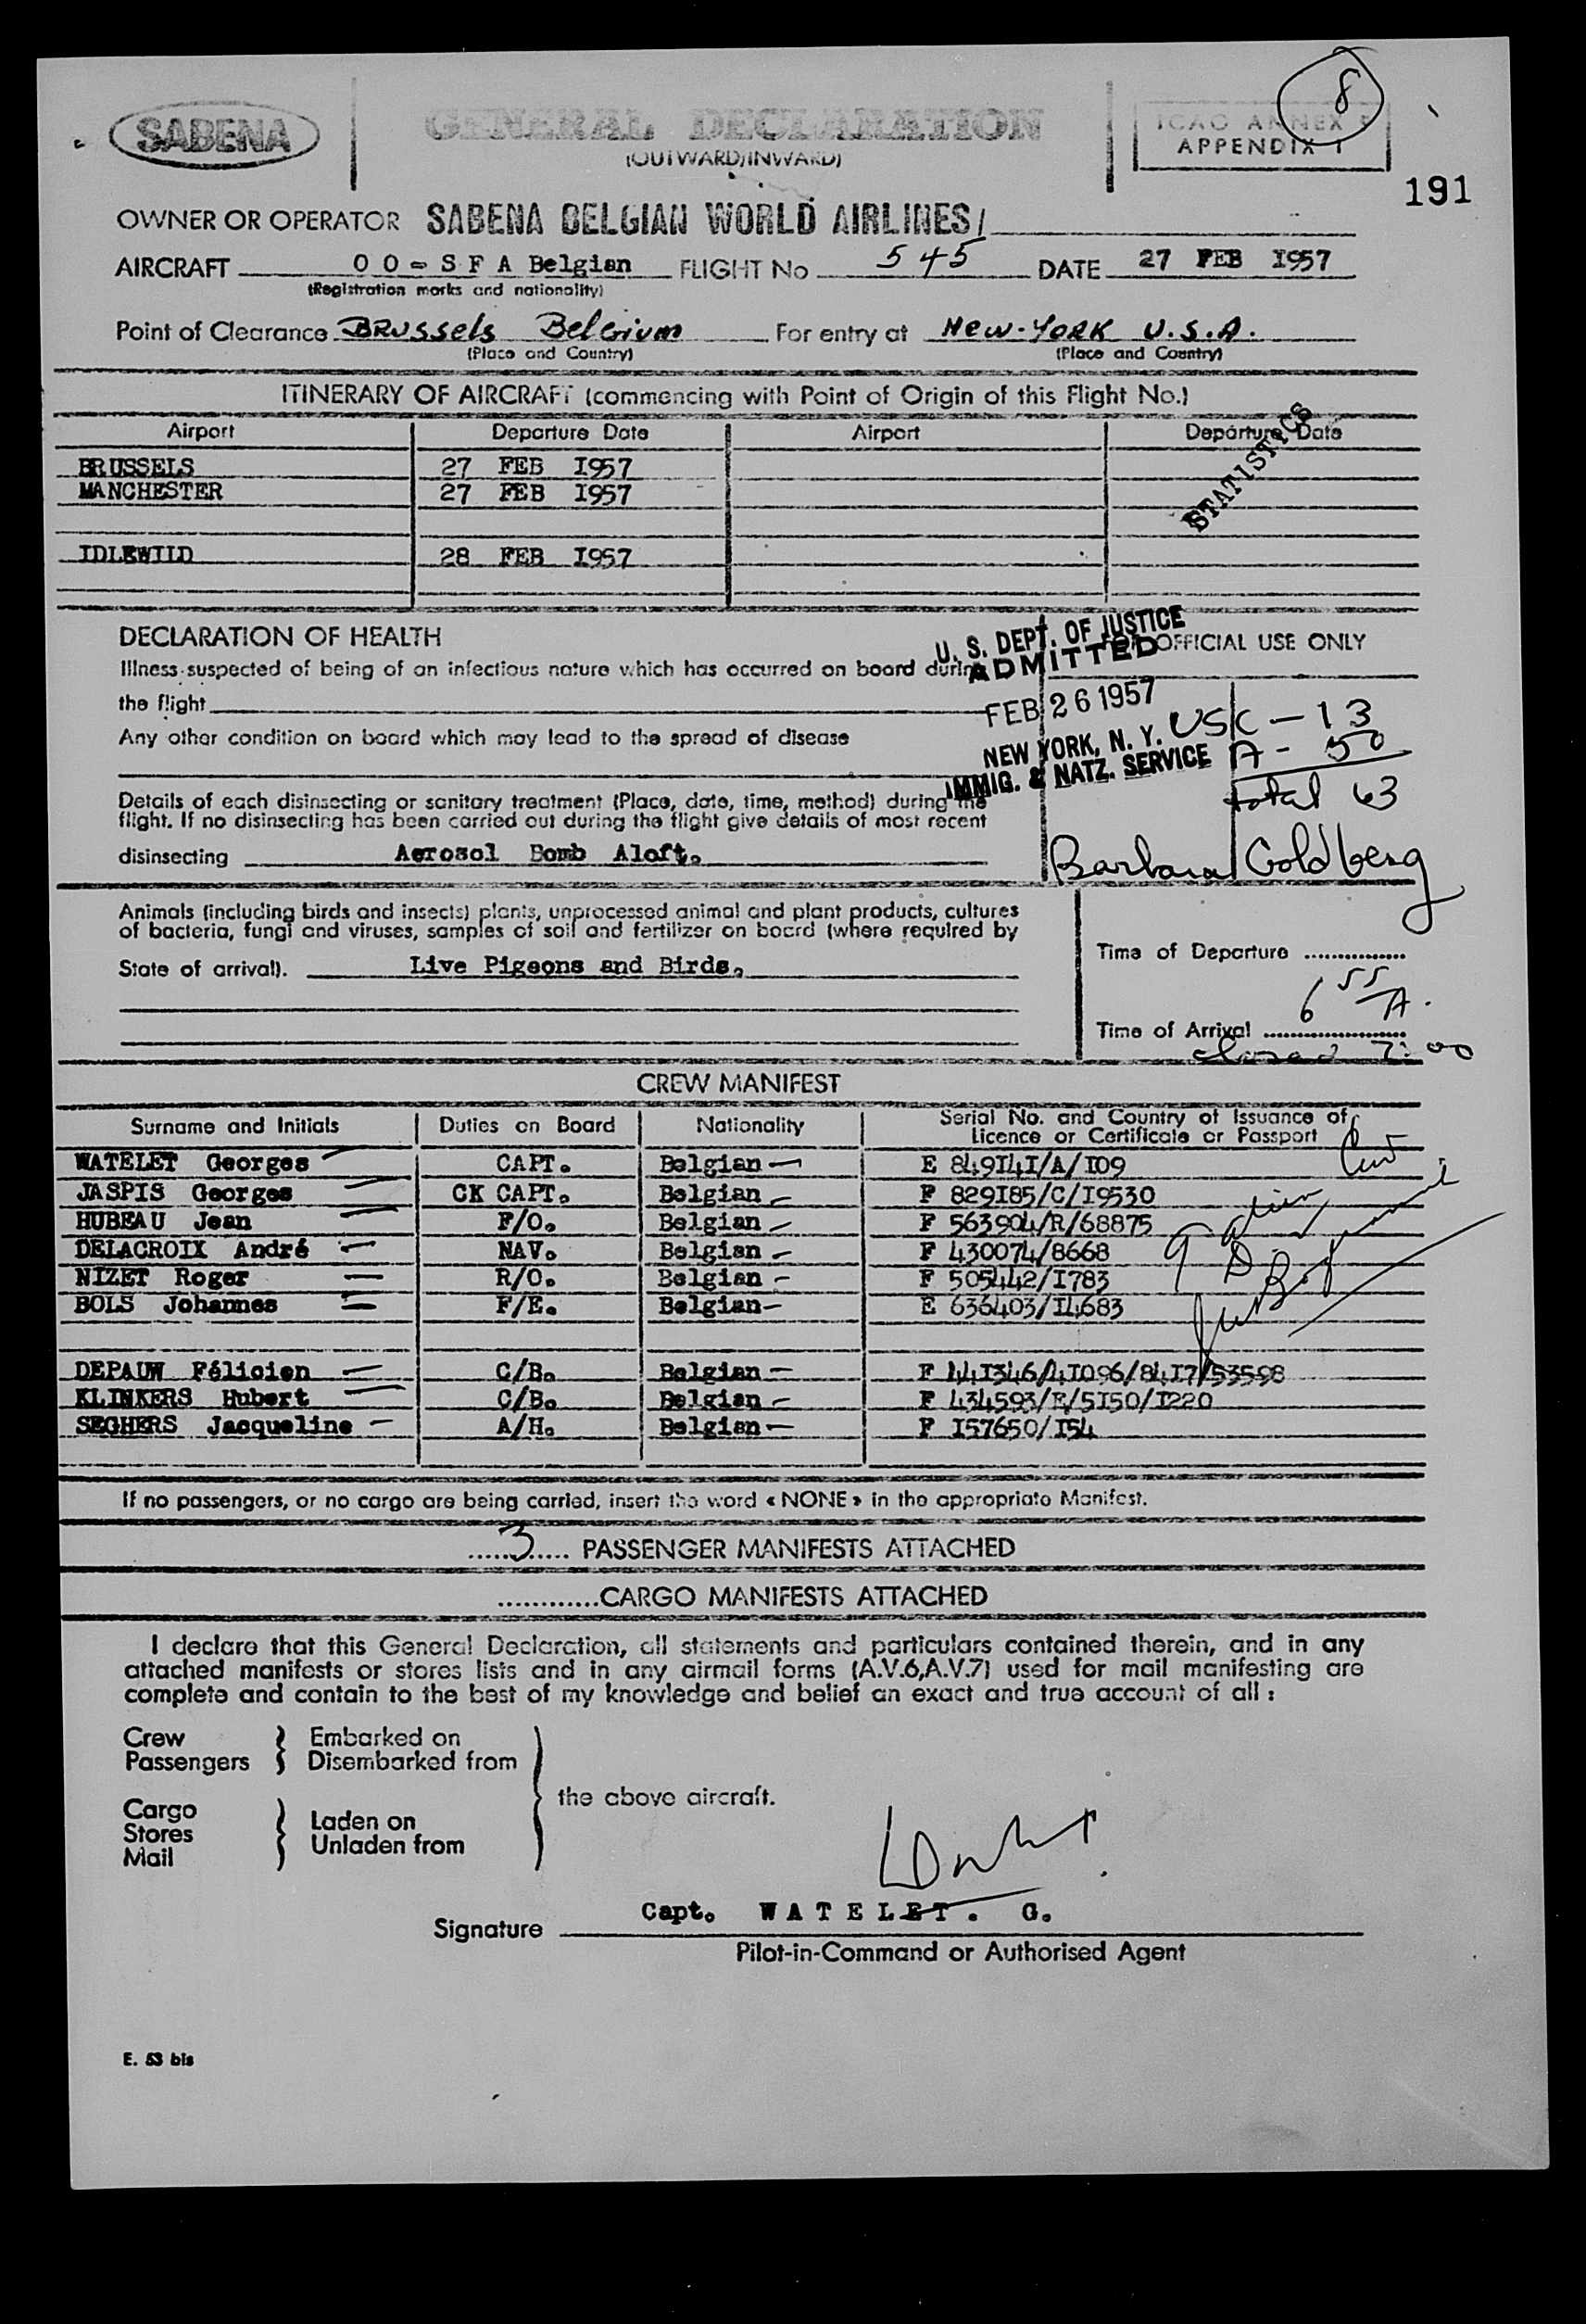 8
SABENA
GENERAL DECLARATION
(OUTWARD/INWARD)
ICAO ANNEX
APPENDIX 1
191
OWNER OR OPERATOR SABENA BELGIAN WORLD AIRLINES/
AIRCRAFT 0 0 - S F A Belgian FLIGHT No 545 DATE 27 FEB I957
(Registration marks and nationality)
Point of Clearance BRussels Belgium For entry at New-York U.S.A.
(Place and Country) (Place and Country)
ITINERARY OF AIRCRAFT (commencing with Point of Origin of this Flight No.)
Airport Departure Date Airport Departure Date
STATISTICS
BRUSSELS 27 FEB I957
MANCHESTER 27 FEB I957
IDLEWILD 28 FEB I957
DECLARATION OF HEALTH
OFFICIAL USE ONLY
U. S. DEPT. OF JUSTICE
ADMITTED
FEB 26 1957
NEW YORK, N. Y.
IMMIG. & NATZ. SERVICE
Illness suspected of being of an infectious nature which has occurred on board during
the flight
Any other condition on board which may lead to the spread of disease
USC - 13
A - 50
total 63
Barbara Goldberg
Details of each disinsecting or sanitary treatment (Place, date, time, method) during the
flight. If no disinsecting has been carried out during the flight give details of most recent
disinsecting Aerosol Bomb Aloft.
Animals (including birds and insects) plants, unprocessed animal and plant products, cultures
of bacteria, fungi and viruses, samples of soil and fertilizer on board (where required by
State of arrival). Live Pigeons and Birds.
Time of Departure
6 55 A.
Time of Arrival
closed 7:00
CREW MANIFEST
Surname and Initials Duties on Board Nationality Serial No. and Country of Issuance of
Licence or Certificate or Passport
WATELET Georges CAPT. Belgian E 849I4I/A/I09
JASPIS Georges CK CAPT. Belgian F 829I85/C/I9530
HUBEAU Jean F/O. Belgian F 563904/R/68875
DELACROIX André NAV. Belgian F 430074/8668
NIZET Roger R/O. Belgian F 505442/I783
BOLS Johannes F/E. Belgian E 636403/I4683
DEPAUW Félicien C/B. Belgian F 44I346/4I096/84I7/53598
KLINKERS Hubert C/B. Belgian F 434593/E/5I50/I220
SEGHERS Jacqueline A/H. Belgian F I57650/I54
If no passengers, or no cargo are being carried, insert the word « NONE » in the appropriate Manifest.
3 PASSENGER MANIFESTS ATTACHED
CARGO MANIFESTS ATTACHED
I declare that this General Declaration, all statements and particulars contained therein, and in any
attached manifests or stores lists and in any airmail forms (A.V.6,A.V.7) used for mail manifesting are
complete and contain to the best of my knowledge and belief an exact and true account of all :
Crew
Passengers
Embarked on
Disembarked from
the above aircraft.
Cargo
Stores
Mail
Laden on
Unladen from
Capt. W A T E L E T . G.
Signature
Pilot-in-Command or Authorised Agent
E. 53 bis